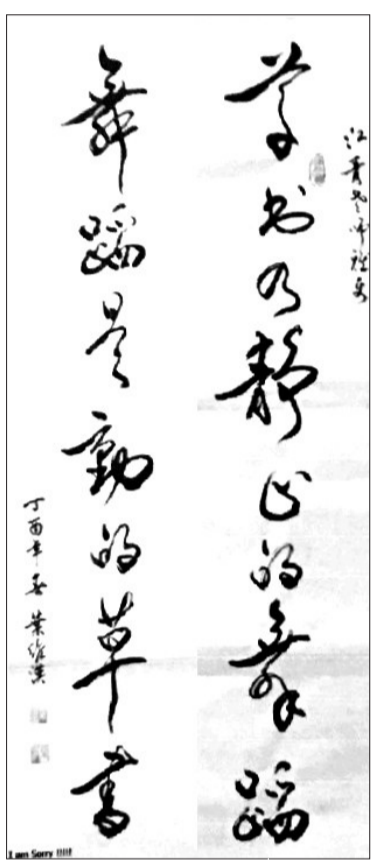 江青老师雅
草书乃静止的舞蹈
舞蹈是動的草書
丁酉年春 葉維
I am Sorry !!!!!